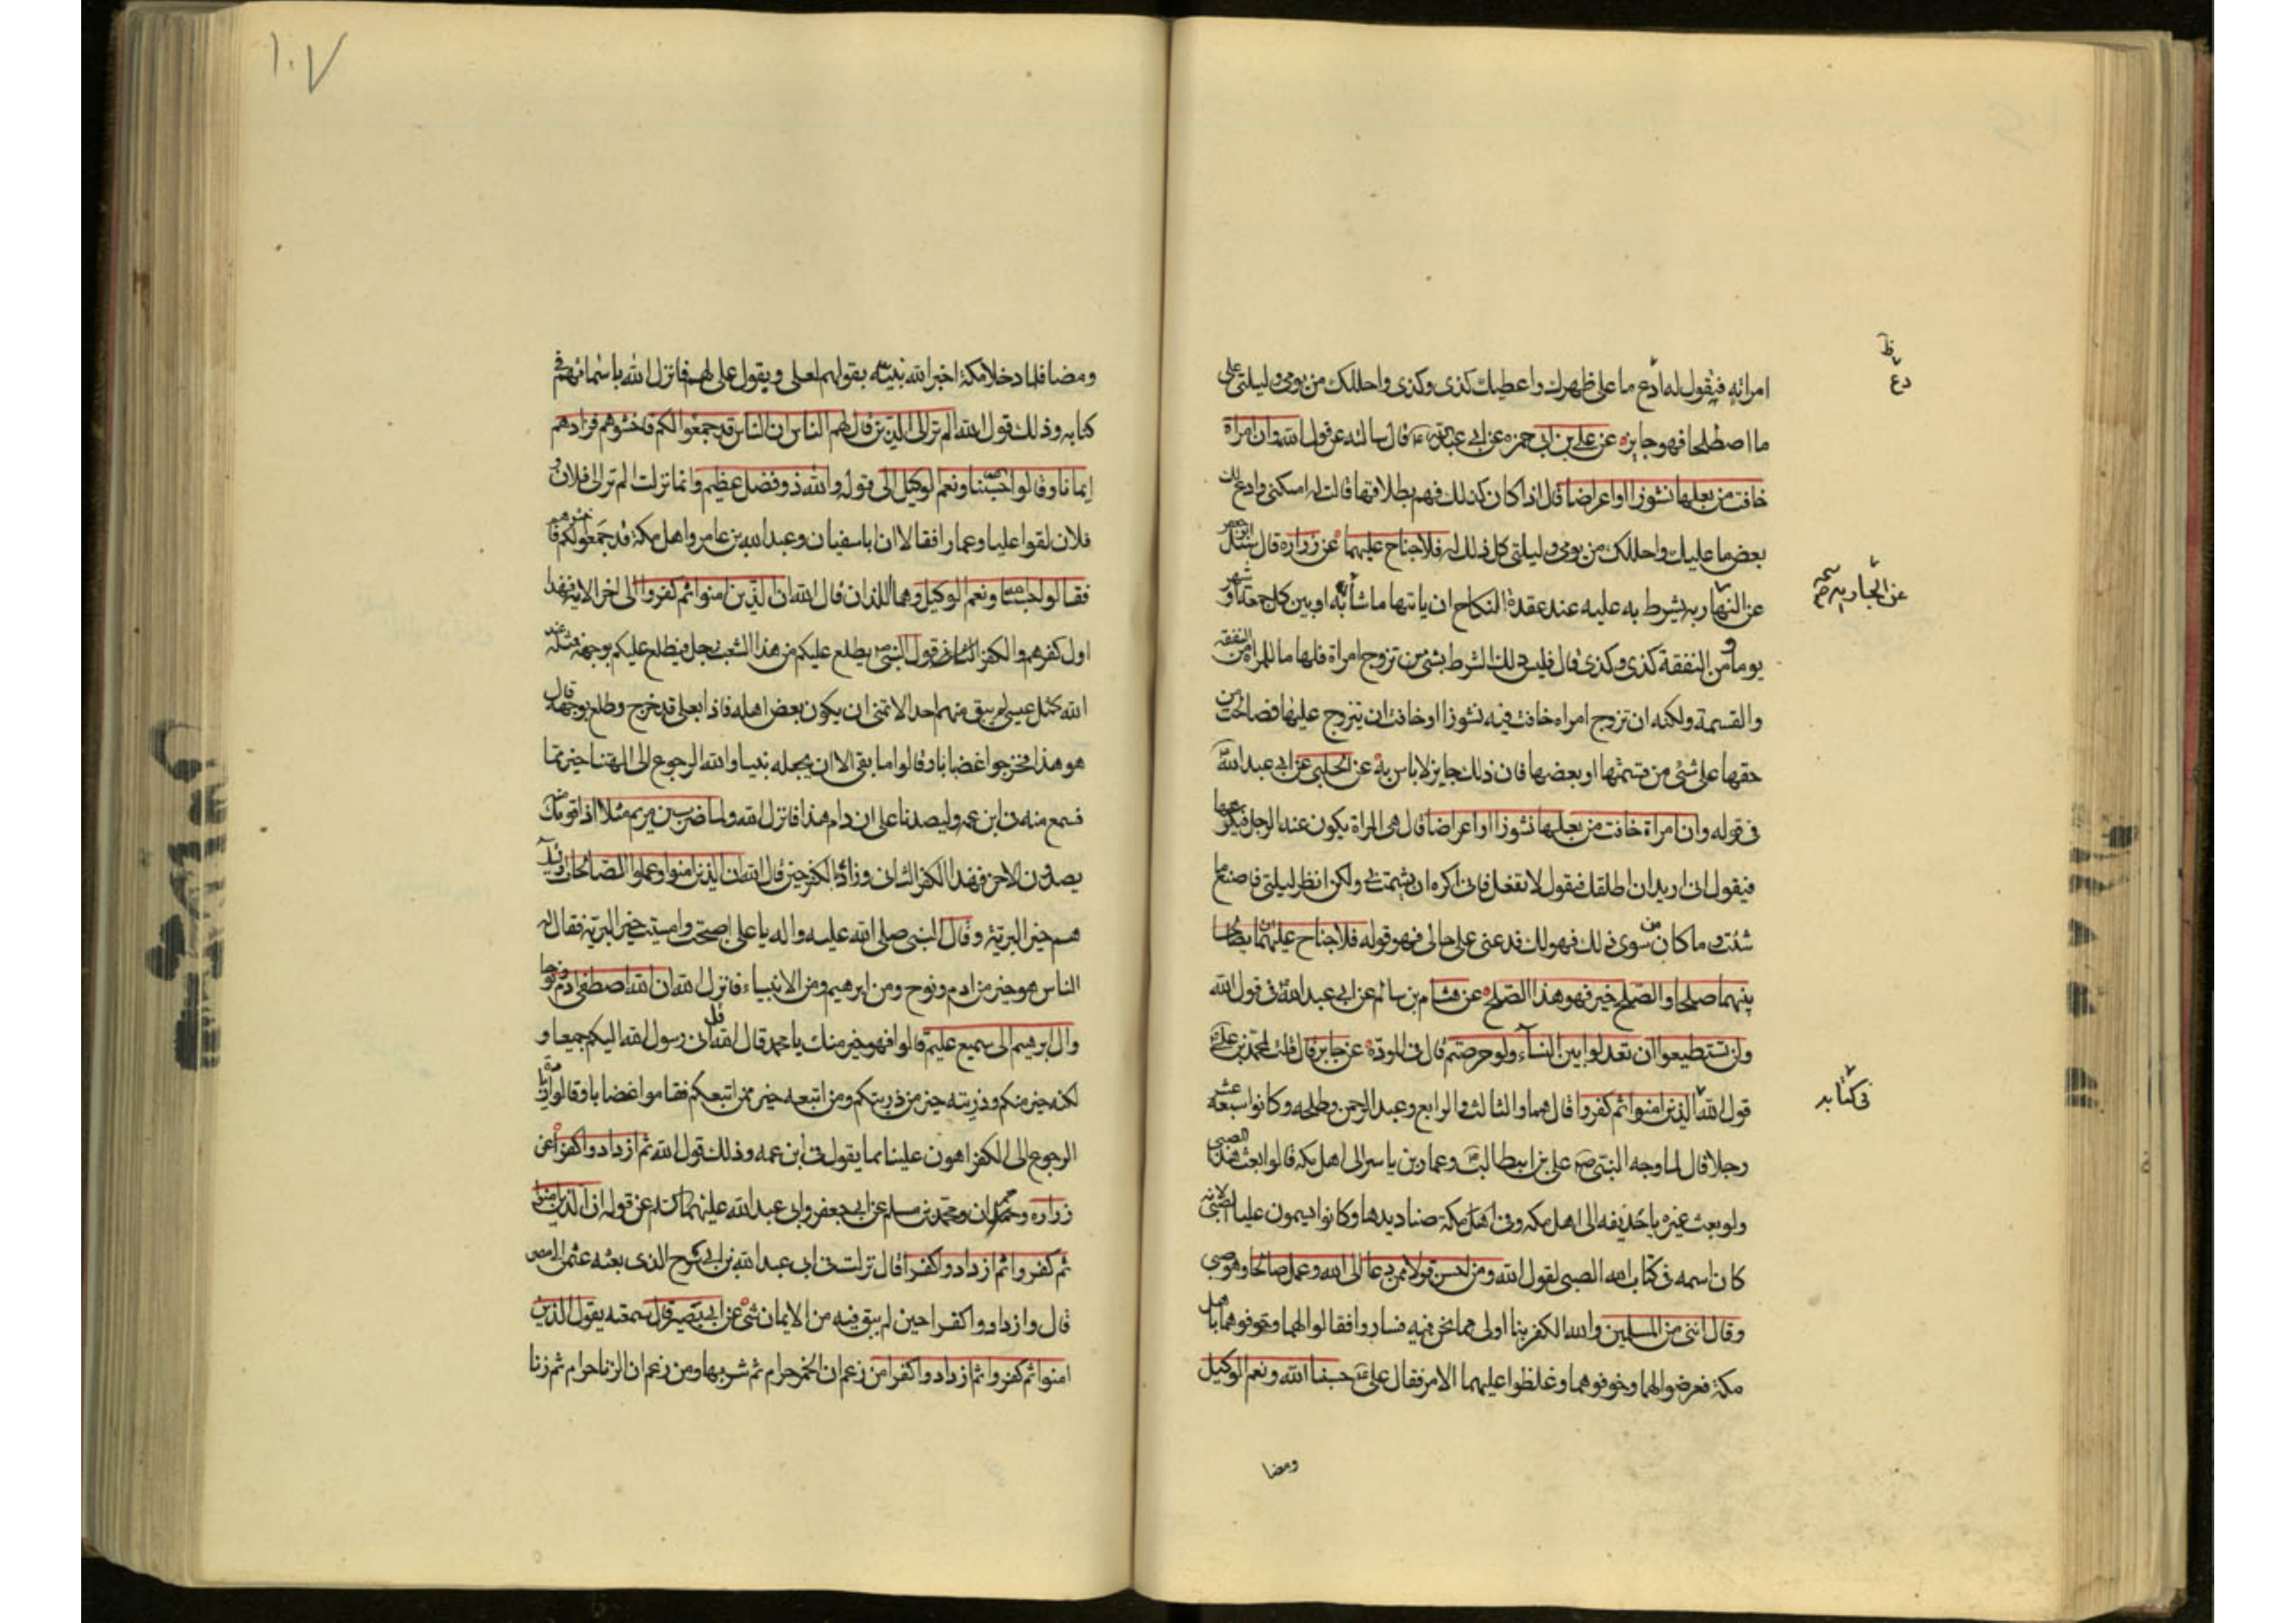 امراته فيقول له ادع ما على ظهرك واعطيك كذى وكذى واحللك من يومى وليلتى على
ما اصطلحا فهو جايز عن على بن ابى حمزه عن ابى عبد الله ع قال سالته عن قول الله وان امراة
خافت من بعلها نشوزا او اعراضا قال اذا كان كذلك فهم بطلاقها قالت له امسكنى وادع لك
بعض ما عليك واحللك من يومى وليلتى كل ذلك له فلا جناح عليهما عن زراره قال سئل ابو جعفر
عن النهاريه يشرط به عليه عند عقدة النكاح ان ياتيها ما شاء او بين كل جمعة او شهر
يوما ومن النفقة كذى وكذى قال فليس ذلك الشرط بشئ من تزوج امراة فلها ما للمراة من النفقه
والقسمة ولكنه ان تزوج امراه خافت فيه نشوزا او خافت ان يتزوج عليها فصالحت من
حقها على شئ من قسمتها او بعضها فان ذلك جايز لا باس به عن الحلبى عن ابى عبد الله
فى قوله وان امراة خافت من بعلها نشوزا او اعراضا قال هى المراة يكون عند الرجل فيكرهها
فيقول انى اريد ان اطلقك فيقول لا تفعل فانى اكره ان يشمت بى ولكن انظر ليلتى فاصنع ما
شئت وما كان من سوى ذلك فهو لك فدعنى على حالى فهو قوله فلا جناح عليهما ان يصالحا
بينهما صلحا والصلح خير فهو هذا الصلح عن هشام بن سالم عن ابى عبد الله فى قول الله
ولن تستطيعوا ان تعدلوا بين النسآء ولو حرصتم قال فى المودة عن جابر قال قلت لمحمد بن على
قول الله الذين امنوا ثم كفروا قال هما والثالث والرابع وعبد الرحمن وطلحه وكانوا سبعة عشر
رجلا قال لما وجه النبى ص على بن ابيطالب وعمار بن ياسر الى اهل مكه قالوا بعث هذا الصبى
ولو بعث غيره يا حذيفه الى اهل مكه وفى اهل مكة صناديدها وكانوا يسمون عليا الصبى لانه
كان اسمه فى كتاب الله الصبى لقول الله ومن احسن قولا ممن دعا الى الله وعمل صالحا وهو صبى
وقال اننى من المسلمين والله الكفر بنا اولى مما نحن فيه فساروا فقالوا لهما وخوفوهما باهل
مكة فعرضوا لهما وخوفوهما وغلظوا عليهما الامر فقال على حسبنا الله ونعم الوكيل
ومضا
دع
فى كتابه
١٠٧
ومضا فلما دخلا مكة اخبر الله نبيه بقولهم لعلى ويقول على لهم فانزل الله باسمائهم فى
كتابه وذلك قول الله الم تر الى الذين قال لهم الناس ان الناس قد جمعوا لكم فاخشوهم فزادهم
ايمانا وقالوا حسبنا الله ونعم الوكيل الى قوله والله ذو فضل عظيم وانما نزلت الم تر الى فلان و
فلان لقوا عليا وعمارا فقالا ان ابا سفيان وعبد الله بن عامر واهل مكة قد جمعوا لكم فاخشوهم
فقالوا حسبنا الله ونعم الوكيل وهما اللذان قال الله ان الذين امنوا ثم كفروا الى اخر الاية فهذا
اول كفرهم والكفر الثانى قول النبى ص يطلع عليكم من هذا الشعب رجل فيطلع عليكم بوجهه مثله عند
الله كمثل عيسى لم يبق منهم احد الا تمنى ان يكون بعض اهله فاذا بعلى قد خرج وطلع بوجهه قال
هو هذا فخرجوا غضابا وقالوا ما بقى الا ان يجعله نبيا والله الرجوع الى الهتنا خير مما
نسمع منه فى ابن عمه وليصدنا على ان دام هذا فانزل الله ولما ضرب ابن مريم مثلا اذا قومك منه
يصدون الاخر فهذا الكفر الثانى وزاد الكفر حين قال الله ان الذين امنوا وعملوا الصالحات اولئك
هم خير البرية وقال النبى صلى الله عليه واله يا على اصبحت وامسيت خير البرية فقال له
الناس هو خير من ادم ونوح ومن ابرهيم ومن الانبياء فانزل الله ان الله اصطفى ادم ونوحا
وال ابرهيم الى سميع عليم قالوا فهو خير منك يا محمد قال الله قل انى رسول الله اليكم جميعا و
لكنه خير منكم وذريته خير من ذريتكم ومن اتبعه خير ممن اتبعكم فقاموا غضابا وقالوا زيادة
الرجوع الى الكفر اهون علينا مما يقول فى ابن عمه وذلك قول الله ثم ازدادوا كفرا عن
زراره وحمران ومحمد بن مسلم عن ابى جعفر وابى عبد الله عليهما السلم عن قوله ان الذين امنوا
ثم كفروا ثم ازدادوا كفرا قال نزلت فى ابى عبد الله بن ابى سرح الذى بعثه عثمن الى مصر
قال وازدادوا كفرا حين لم يبق فيه من الايمان شئ عن ابى بصير قال سمعته يقول الذين
امنوا ثم كفروا ثم ازدادوا كفرا من زعم ان الخمر حرام ثم شربها ومن زعم ان الزنا حرام ثم زنا